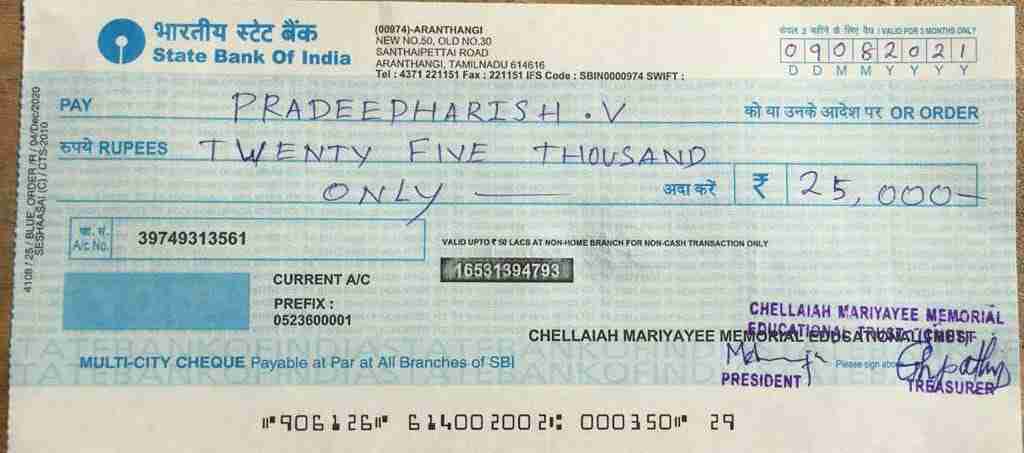 भारतीय स्टेट बैंक
State Bank Of India
(00974)-ARANTHANGI
NEW NO.50, OLD NO.30
SANTHAIPETTAI ROAD
ARANTHANGI, TAMILNADU 614616
Tel : 4371 221151 Fax : 221151 IFS Code : SBIN0000974 SWIFT :
केवल 3 महीने के लिए वैध / VALID FOR 3 MONTHS ONLY
09082021
D D M M Y Y Y Y
PAY PRADEEPHARISH . V को या उनके आदेश पर OR ORDER
रुपये RUPEES TWENTY FIVE THOUSAND
ONLY — अदा करें ₹ 25,000-
खा. सं.
A/c No. 39749313561
VALID UPTO ₹ 50 LACS AT NON-HOME BRANCH FOR NON-CASH TRANSACTION ONLY
16531394793
CURRENT A/C
PREFIX :
0523600001
CHELLAIAH MARIYAYEE MEMORIAL
EDUCATIONAL TRUST
CHELLAIAH MARIYAYEE MEMORIAL EDUCATIONAL TRUST
MULTI-CITY CHEQUE Payable at Par at All Branches of SBI
Please sign above
PRESIDENT
TREASURER
4108 / 25 / BLUE_ORDER /R / 04/Dec/2020
SESHAASAI (C) / CTS-2010
⑈906126⑈ 614002002⑆ 000350⑈ 29